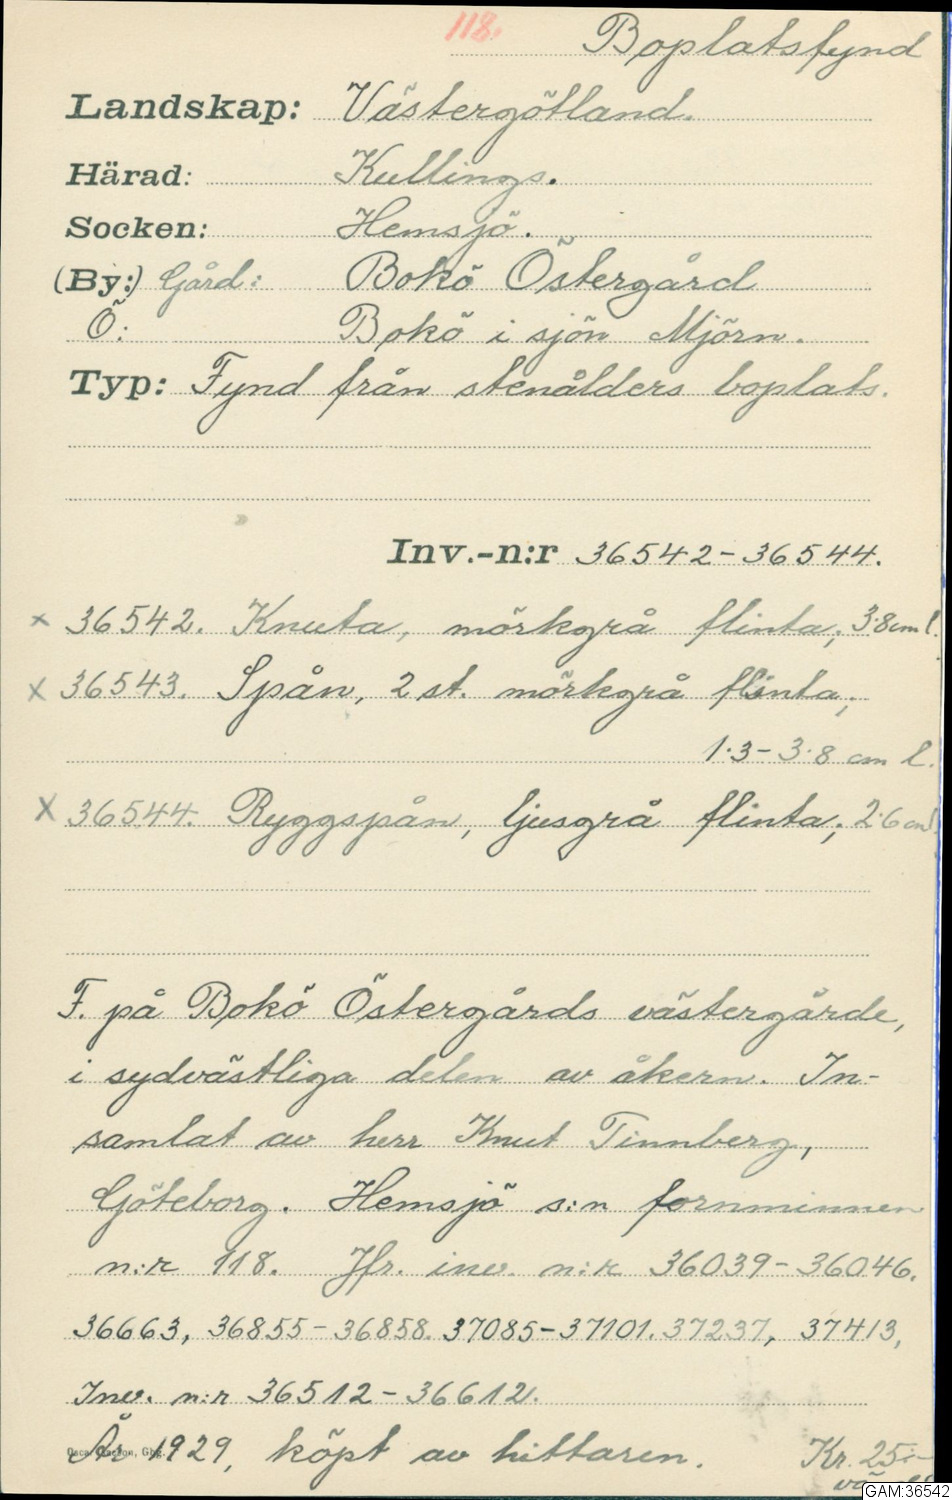 118.
Boplatsfynd
Landskap: Västergötland.
Härad: Kullings.
Socken: Hemsjö.
(By:) Gård: Bokö Östergård
Ö: Bokö i sjön Mjörn.
Typ: Fynd från stenålders boplats.
Inv.-n:r 36542-36544.
x 36542. Knuta, mörkgrå flinta; 3.8 cm l.
x 36543. Spån, 2 st. mörkgrå flinta;
1.3-3.8 cm l.
x 36544. Ryggspån, ljusgrå flinta; 2.6 cm l.
F. på Bokö Östergårds västergärde,
i sydvästliga delen av åkern. In-
samlat av herr Knut Tinnberg,
Göteborg. Hemsjö s:n fornminnen
n:r 118. Jfr. inv. n:r 36039-36046.
36663, 36855-36858. 37085-37101. 37237, 37413,
Inv. n:r 36512-36612.
År 1929, köpt av hittaren. Kr. 25:-
GAM:36542